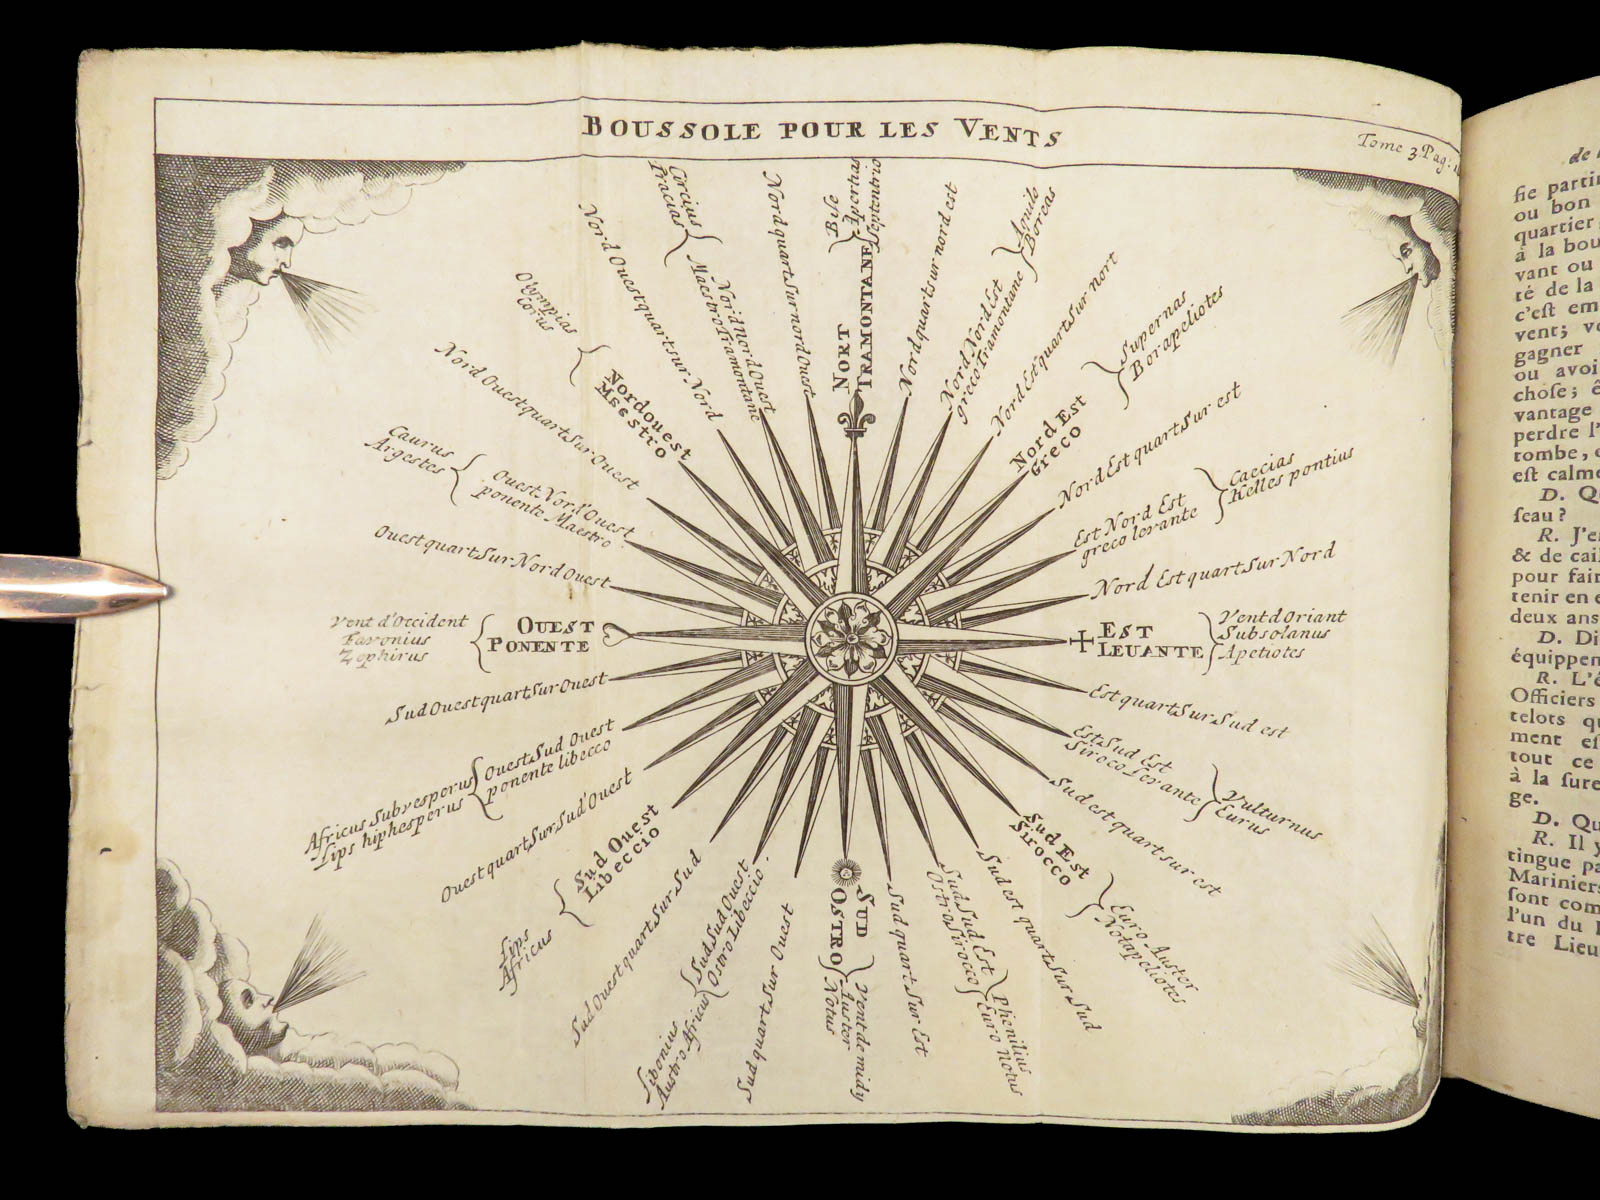 BOUSSOLE POUR LES VENTS
Tome 3. Pag:
Bise
Aperhas
Septentrio
NORT
TRAMONTANE
Nord quart sur nord est
Aquilo
Boreas
Nord Nord Est
greco Tramontane
Nord Est quart Sur nort
Supernas
Borapeliotes
Nord Est
Greco
Nord Est quart Sur est
Caecias
Helles pontius
Est Nord Est
greco levante
Nord Est quart Sur Nord
EST
LEUANTE
Vent d'Oriant
Subsolanus
Apeliotes
Est quart Sur Sud est
Est Sud Est
Siroco Levante
Vulturnus
Eurus
Sud est quart sur est
Sud Est
Sirocco
Euro Auster
Notapeliotes
Sud est quart Sur Sud
Sud Sud Est
Ostro Sirocco
Phenilius
Euro Notus
Sud quart Sur Est
SUD
OSTRO
Vent de midy
Auster
Notus
Sud quart Sur Ouest
Sud Sud Ouest
Ostro Libeccio
Libonius
Austro Africus
Sud Ouest quart Sur Sud
Sud Ouest
Libeccio
Lips
Africus
Ouest quart Sur Sud'Ouest
Ouest Sud Ouest
ponente libecco
Africus Subvesperus
Lips hiphesperus
Sud Ouest quart Sur Ouest
OUEST
PONENTE
Vent d'Occident
Favonius
Zephirus
Ouest quart Sur Nord Ouest
Ouest Nord'Ouest
ponente Maestro
Caurus
Argestes
Nord Ouest quart Sur Ouest
Nordouest
Maestro
Olympias
Corus
Nord Ouest quart sur Nord
Nord Nord Ouest
Maestro Tramontane
Circius
Tracias
Nord quart Sur nord Ouest
de
fie partir
ou bon
quartier
à la bou
vant ou
té de la
c'eſt em
vent; vo
gagner
ou avoi
choſe; ê
vantage
perdre l'
tombe, c
eſt calme
D. Qu
ſeau?
R. J'en
& de cail
pour fair
tenir en e
deux ans
D. Di
équippen
R. L'é
Officiers
telots qu
ment eſ
tout ce
à la ſure
ge.
D. Qu
R. Il y
tingue pa
Mariniers
ſont com
l'un du
tre Lieu